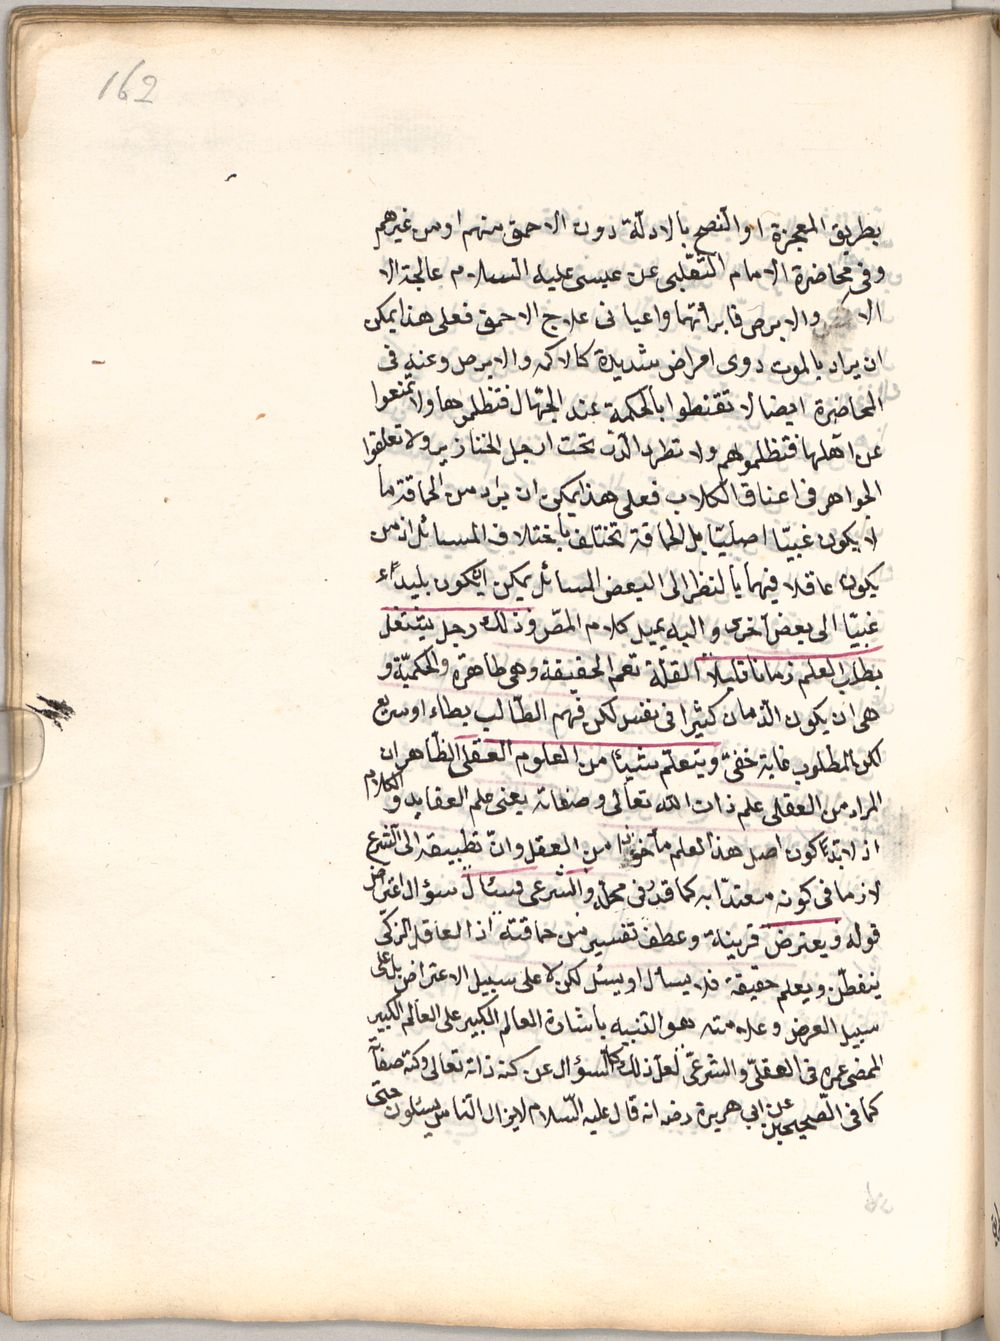 162
بطريق المعجزة او النصح بالادلّة دون الاحمق منهم او من غيرهم
وفى محاضرة الامام الثعلبى عن عيسى عليه السلام عالجة الا
الا والابرص فابرأتهما واعيانى علاج الاحمق فعلى هذا يمكن
ان يراد بالموت ذوى امراض شديدة كالاكمه والابرص وعنه فى
المحاضرة ايضا لا تقنطوا بالحكمة عند الجهّال فتظلموها ولا تمنعوا
عن اهلها فتظلموهم ولا تطرد الدّر تحت ارجل الخنازير ولا تعلقوا
الجواهر فى اعناق الكلاب فعلى هذا يمكن ان يراد من الحماقة ما
لا يكون غبيّا اصليّا بل الحماقة تختلف باختلاف المسائل اذ من
يكون عاقلا فيهما بالنظر الى البعض المسائل يمكن ان يكون بليداء
غبيّا الى بعض اخرى واليه يميل كلام المصّ وذلك رجل يشتغل
بطلب العلم زمانا قليلا القلّة تعم الحقيقة وهى ظاهرة والحكميّة و
هى ان يكون الزمان كثيرا فى نفسه لكن فهم الطّالب بطاء او سريع
لكن المطلوب غاية خفىّ ويتعلم شيئا من العلوم العقلى الظّاهر ان
المراد من العقلى علم ذات الله تعالى وصفاته يعنى علم العقايد و الكلام
اذ لابدّ كون اصل هذا العلم مأخوذا من العقل وانّ تطبيقه الى الشرع
لازما فى كونه معتدّا به كما قدّر فى محلّه والشرعى فسئال سؤال اعتراض
قوله ويعترض قرينة وعطف تفسير من حماقته اذ العاقل الزكى
يتفطّن ويعلم حقيقة فلا يسأل او يسئل لكن لا على سبيل الاعتراض بل على
سبيل العرض وعلامته هو التنبيه باشارة العالم الكبير على العالم الكبير
الممضى عمره فى العقلىّ والشرعىّ لعلّ ذلك كالسؤال عن كنه ذاته تعالى وكنه صفاته
كما فى الصّحيحين عن ابى هريرة رضه انه قال عليه السّلام لا يزال الناس يسئلون حتى